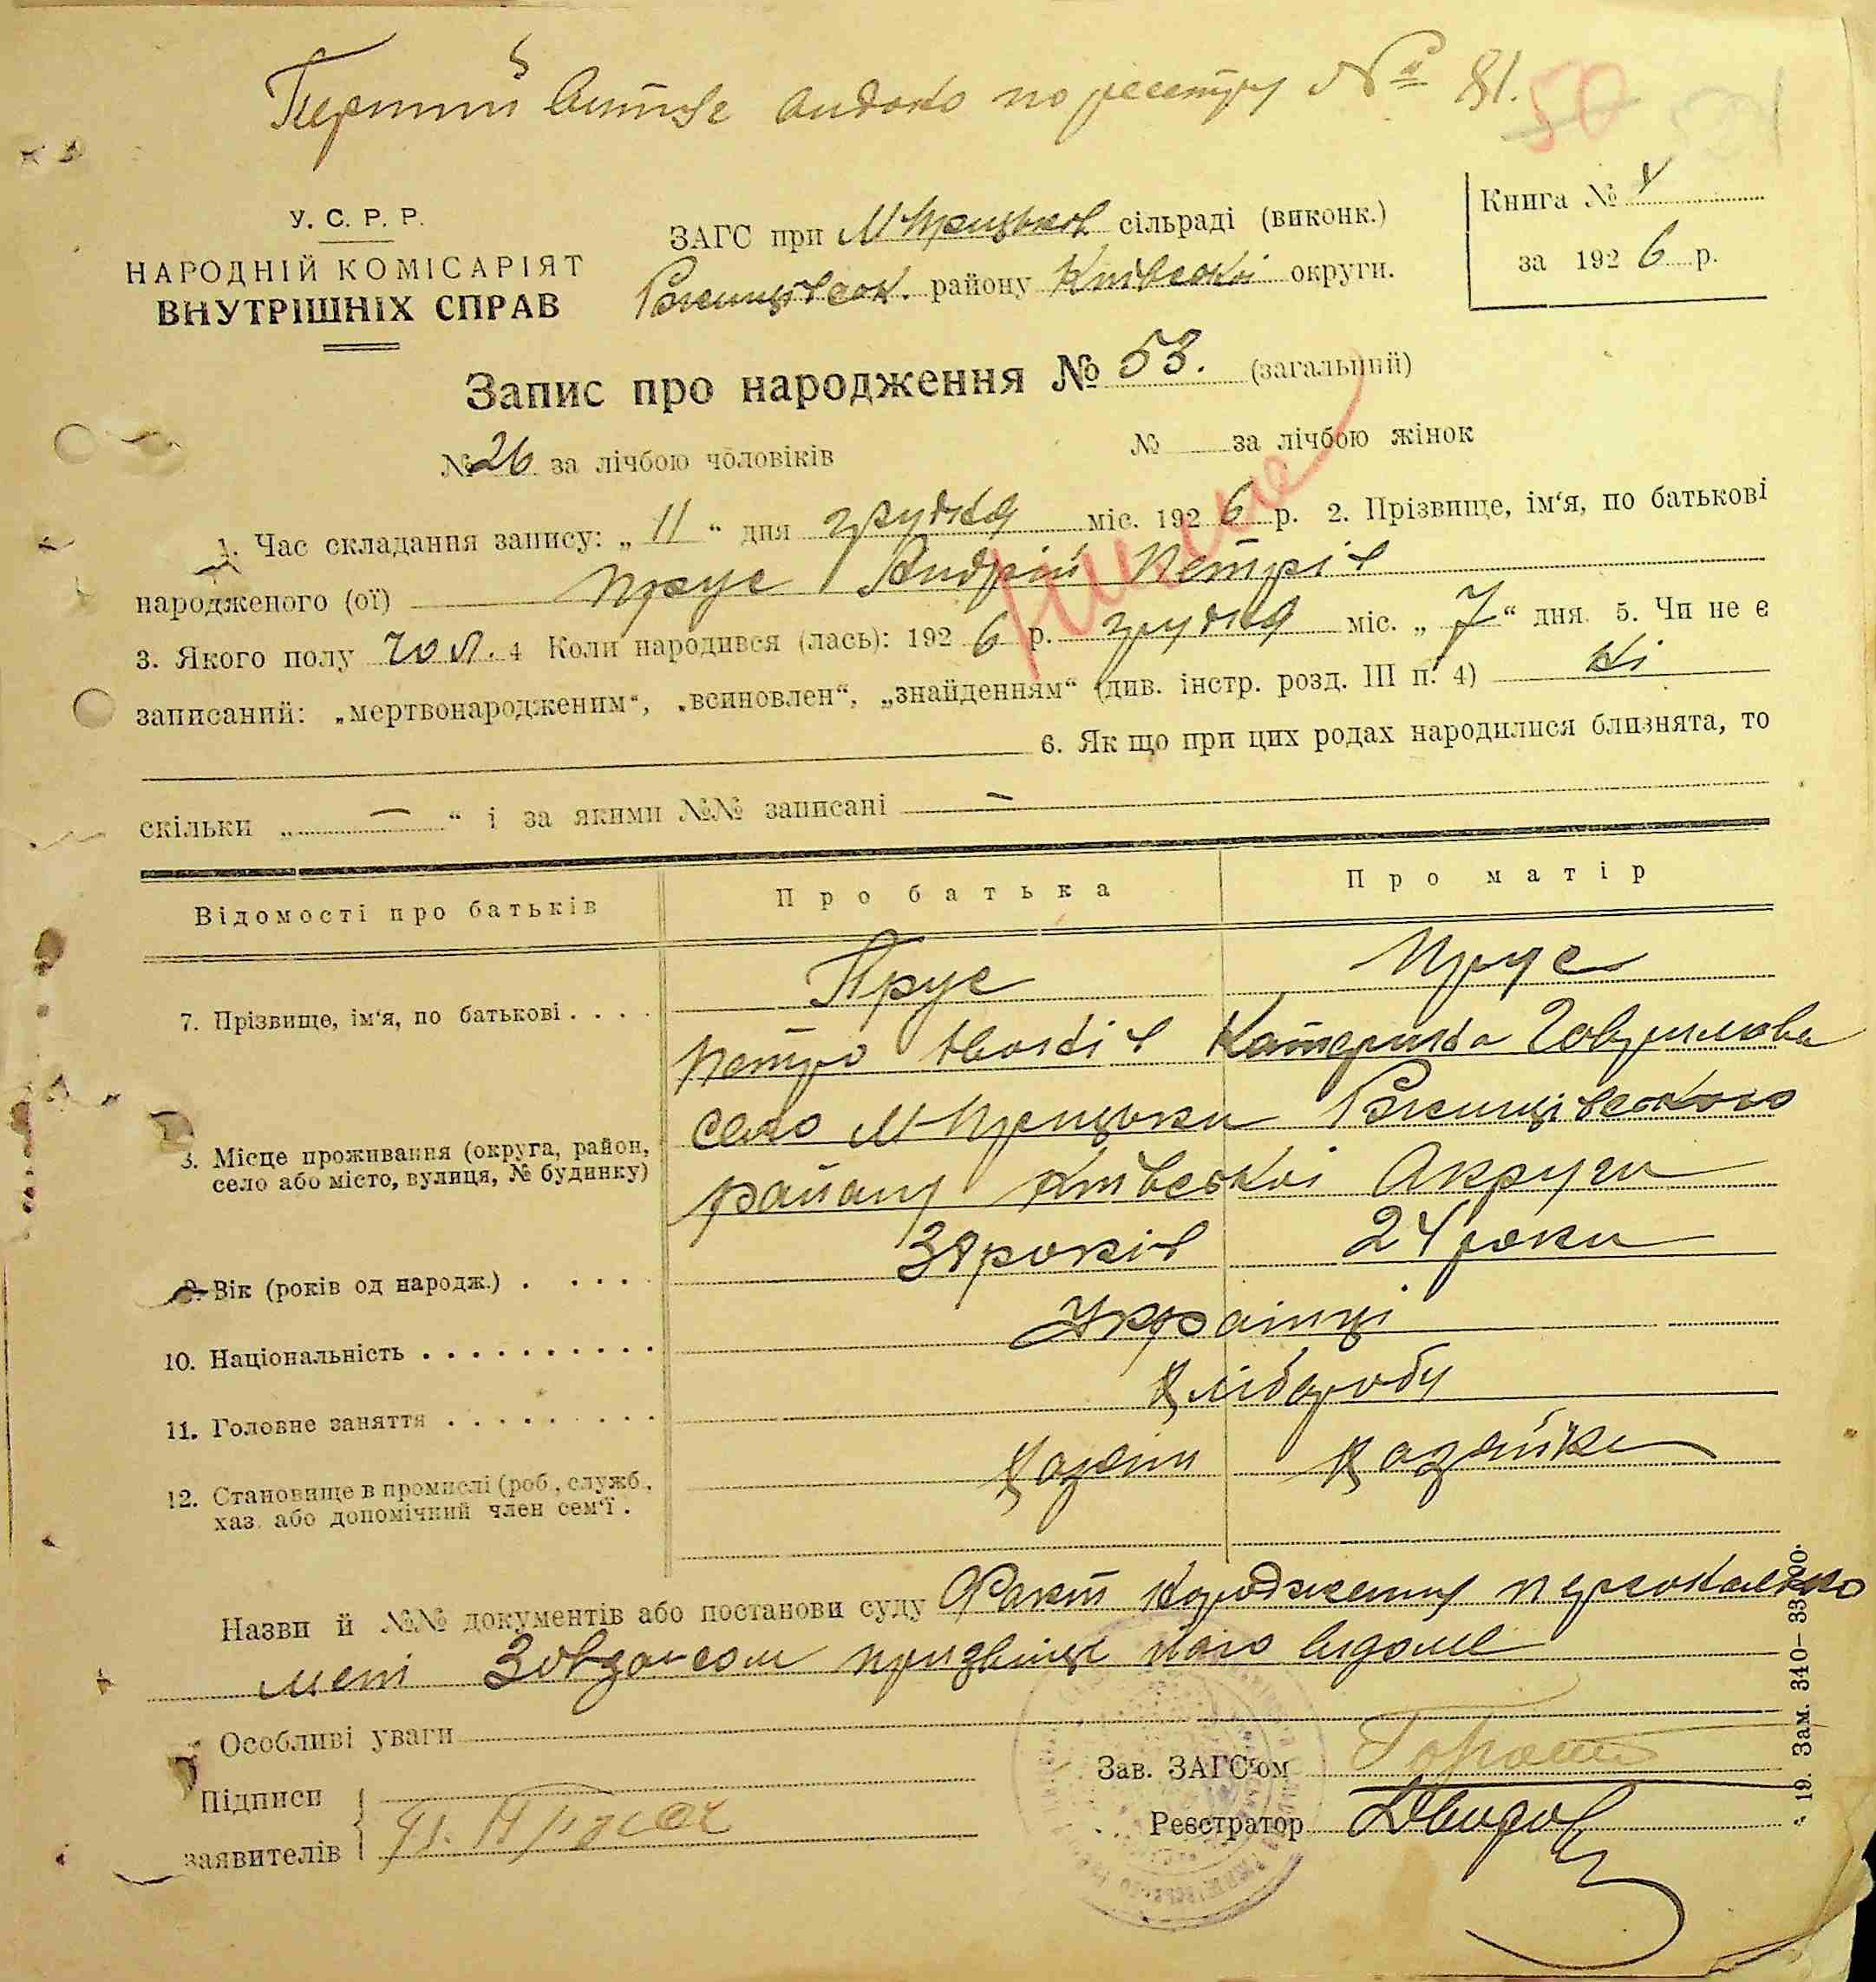 Перший витяг видано по реєстру № 81. 50
У. С. Р. Р.
НАРОДНІЙ КОМІСАРІЯТ
ВНУТРІШНІХ СПРАВ
ЗАГС при М-Прицьков. сільраді (виконк.)
Ржищівськ. району Київської округи.
Книга №
за 1926 р.
Запис про народження № 53. (загальний)
№ 26 за лічбою чоловіків № за лічбою жінок
1. Час складання запису: „ 11 “ дня грудня міс. 1926 р. 2. Прізвище, ім‘я, по батькові
народженого (ої) Прус Андрій Петрів
3. Якого полу чол. 4 Коли народився (лась): 1926 р. грудня міс. „ 7 “ дня. 5. Чи не є
записаний: „мертвонародженим“, „всиновлен“, „знайденням“ (див. інстр. розд. III п. 4) Ні
6. Як що при цих родах народилися близнята, то
скільки „ — “ і за якими №№ записані —
Відомості про батьків Про батька Про матір
7. Прізвище, ім‘я, по батькові . . . . Прус Прус
Петро Катерина
8. Місце проживання (округа, район, село або місто, вулиця, № будинку) село М-Прицьки Ржищівського
району Київської Округи
9. Вік (років од народж.) . . . . років 24 роки
10. Національність . . . . . . . . . . Українці
11. Головне заняття . . . . . . . . . Хлібороби
12. Становище в промислі (роб., служб., хаз. або допомічний член сем‘ї . Хазяїн Хазяйка
Назви й №№ документів або постанови суду Факт народження персонально
мені Завзагсом призвище його відоме
Особливі уваги
Підписи
заявителів
Зав. ЗАГС‘ом
Реєстратор
19. Зам. 340—33000.